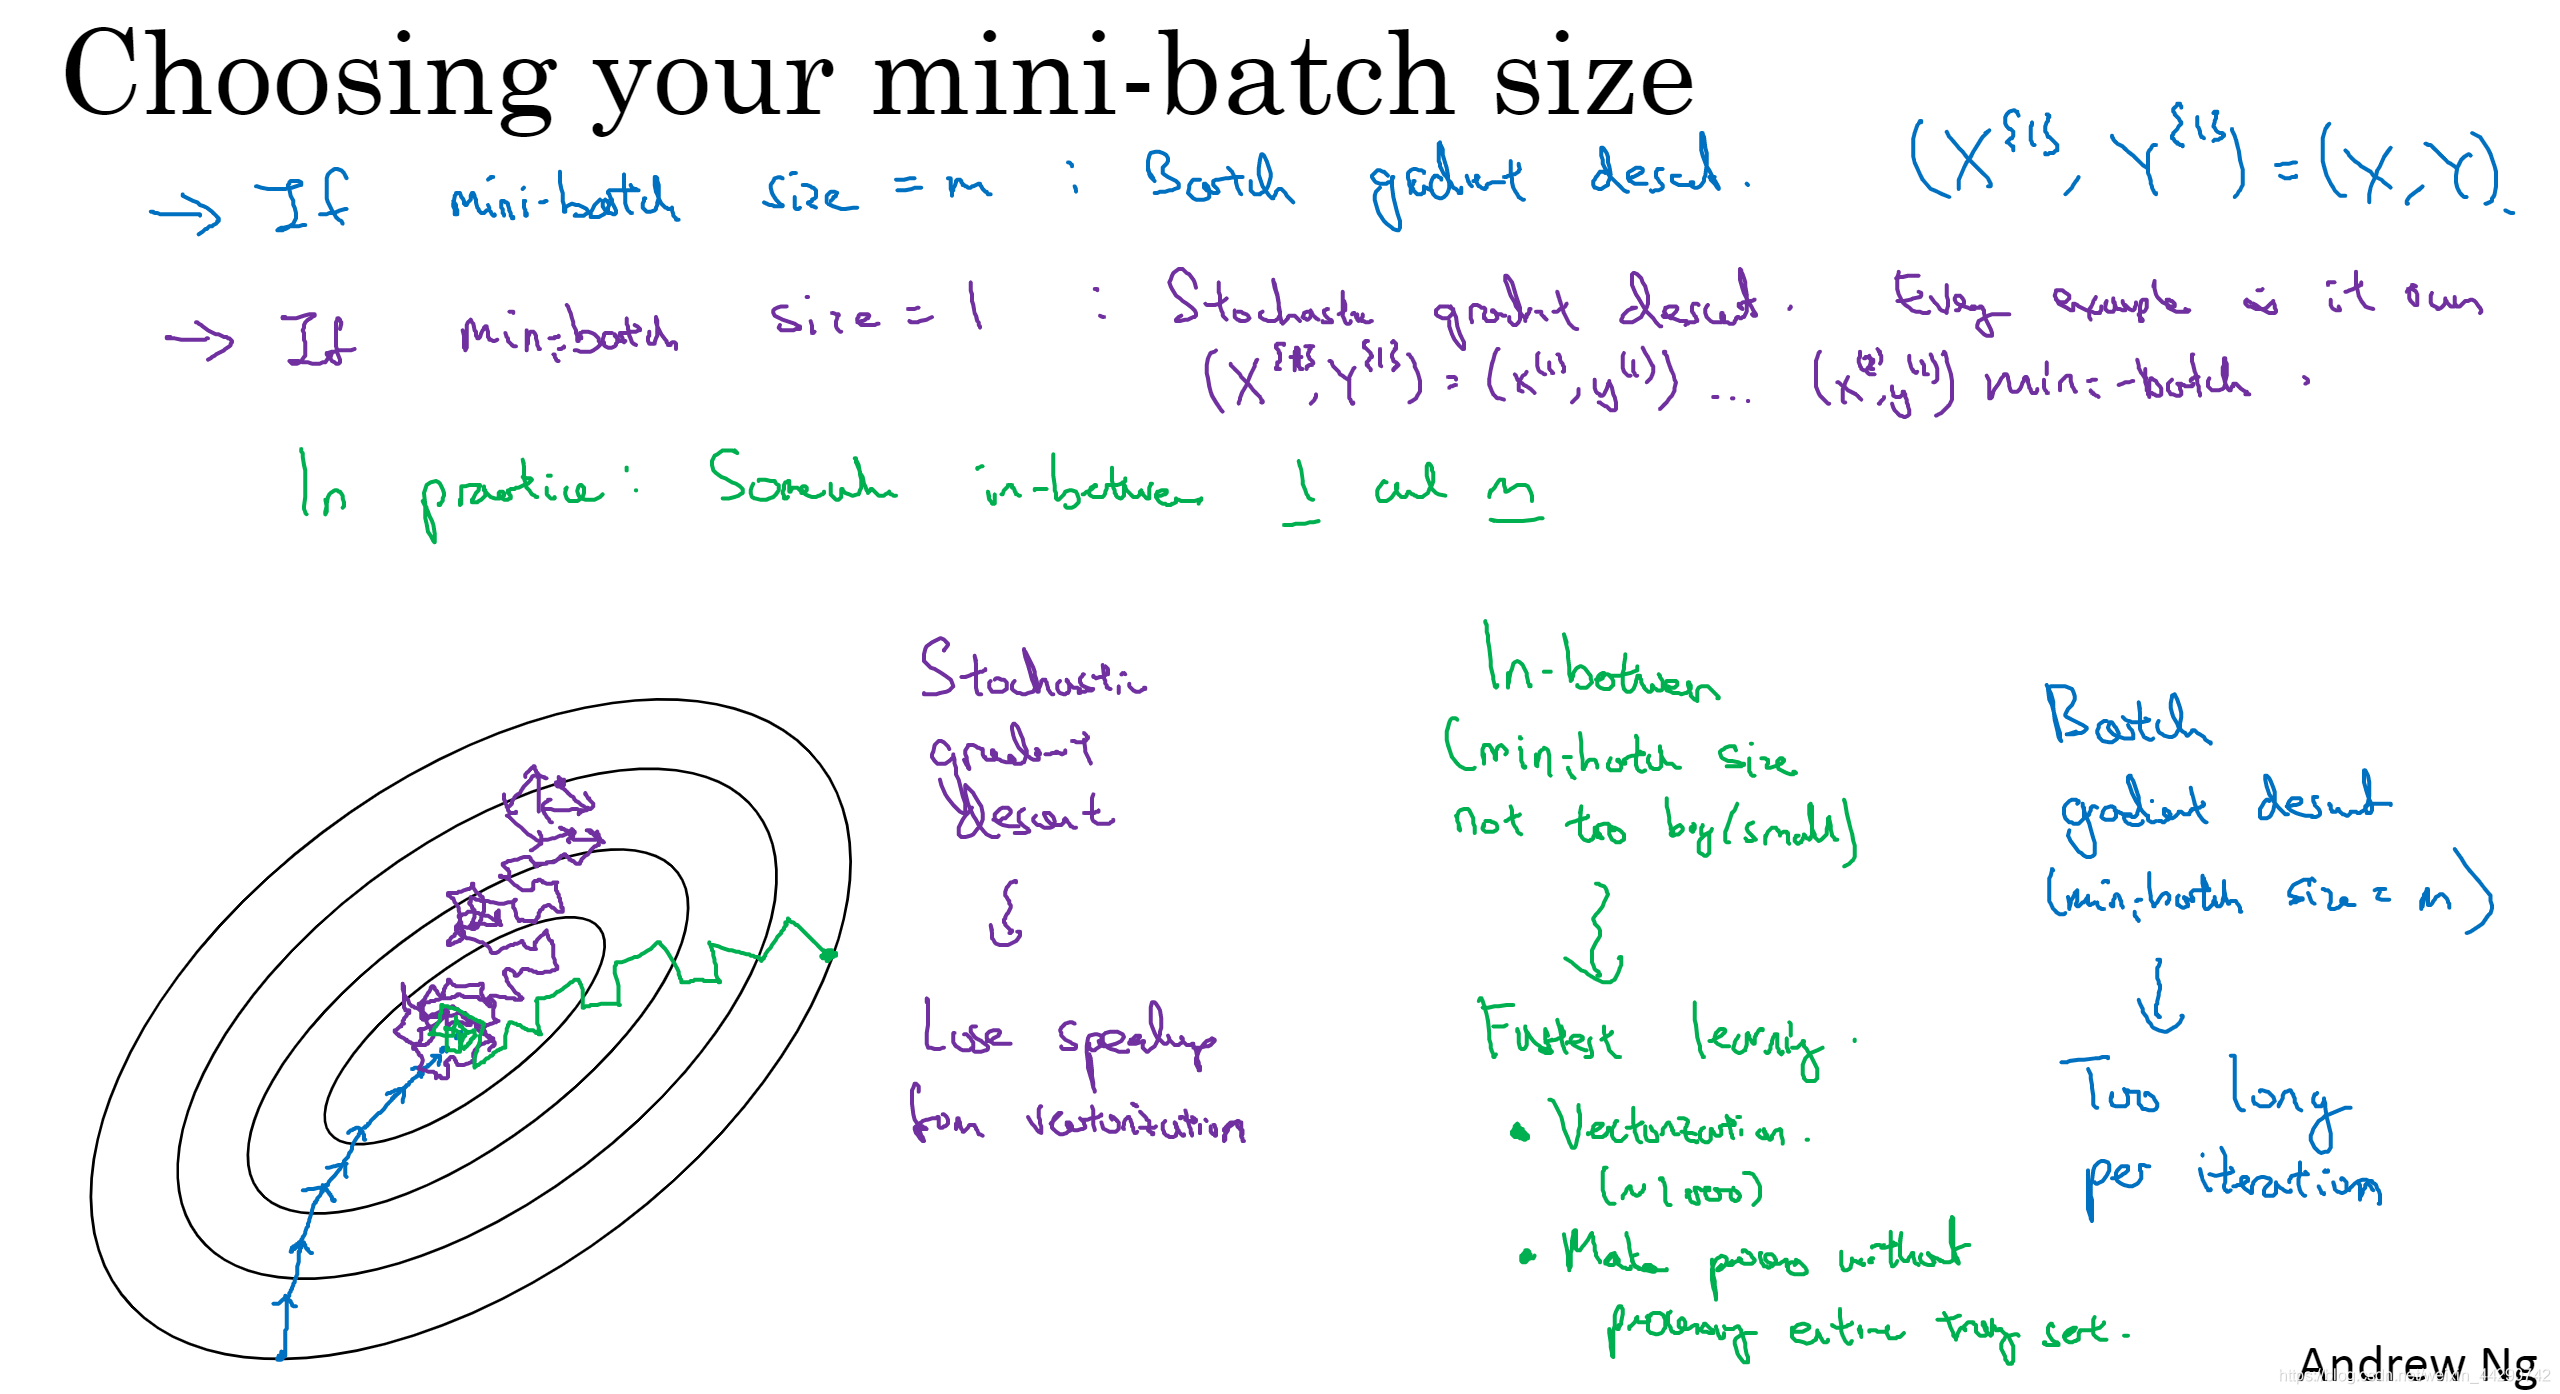 Choosing your mini-batch size
→ If mini-batch size = m : Batch gradient descent. (X^{1}, Y^{1}) = (X, Y).
→ If mini-batch size = 1 : Stochastic gradient descent. Every example is it own
(X^{1}, Y^{1}) = (x^(1), y^(1)) ... (x^(2), y^(2)) mini-batch.
In practice: Somewhere in-between 1 and m
Stochastic
gradient
descent
↓
Lose speedup
from vectorization
In-between
(mini-batch size
not too big/small)
↓
Fastest learning.
• Vectorization.
(~1000)
• Make progress without
processing entire training set.
Batch
gradient descent
(mini-batch size = m)
↓
Too long
per iteration
Andrew Ng